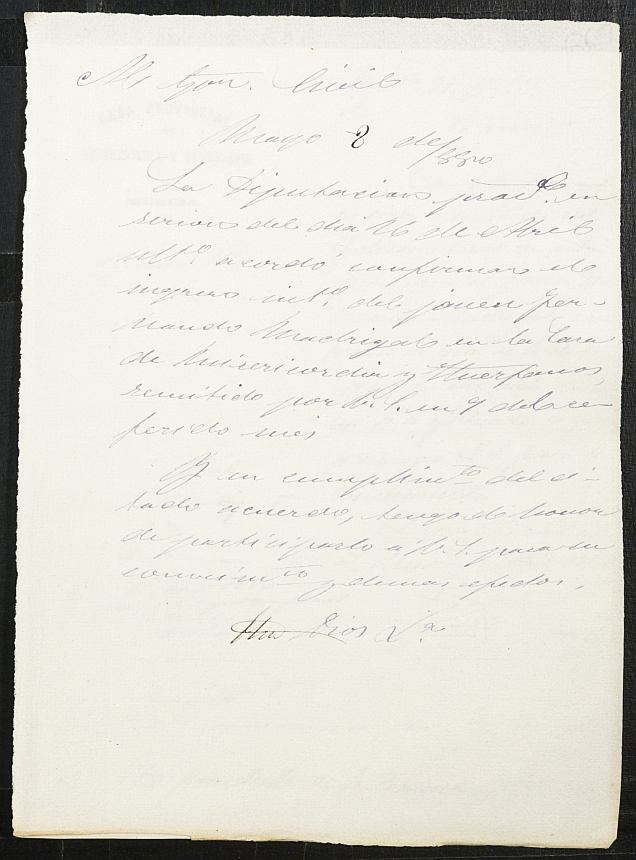 Al Gov. Civil
Mayo 8 de 1880
La Diputacion prov.l en
sesion del dia 26 de Abril
ult.o acordó confirmar el
ingreso int.o del joven Fer-
nando Madrigal en la Casa
de Misericordia y Huerfanos,
remitido por V.S. en 9 del re-
ferido mes
Y en cumplim.to del ci-
tado acuerdo, tengo el honor
de participarlo á V.S. para su
conocim.to y demas efectos.
Dios